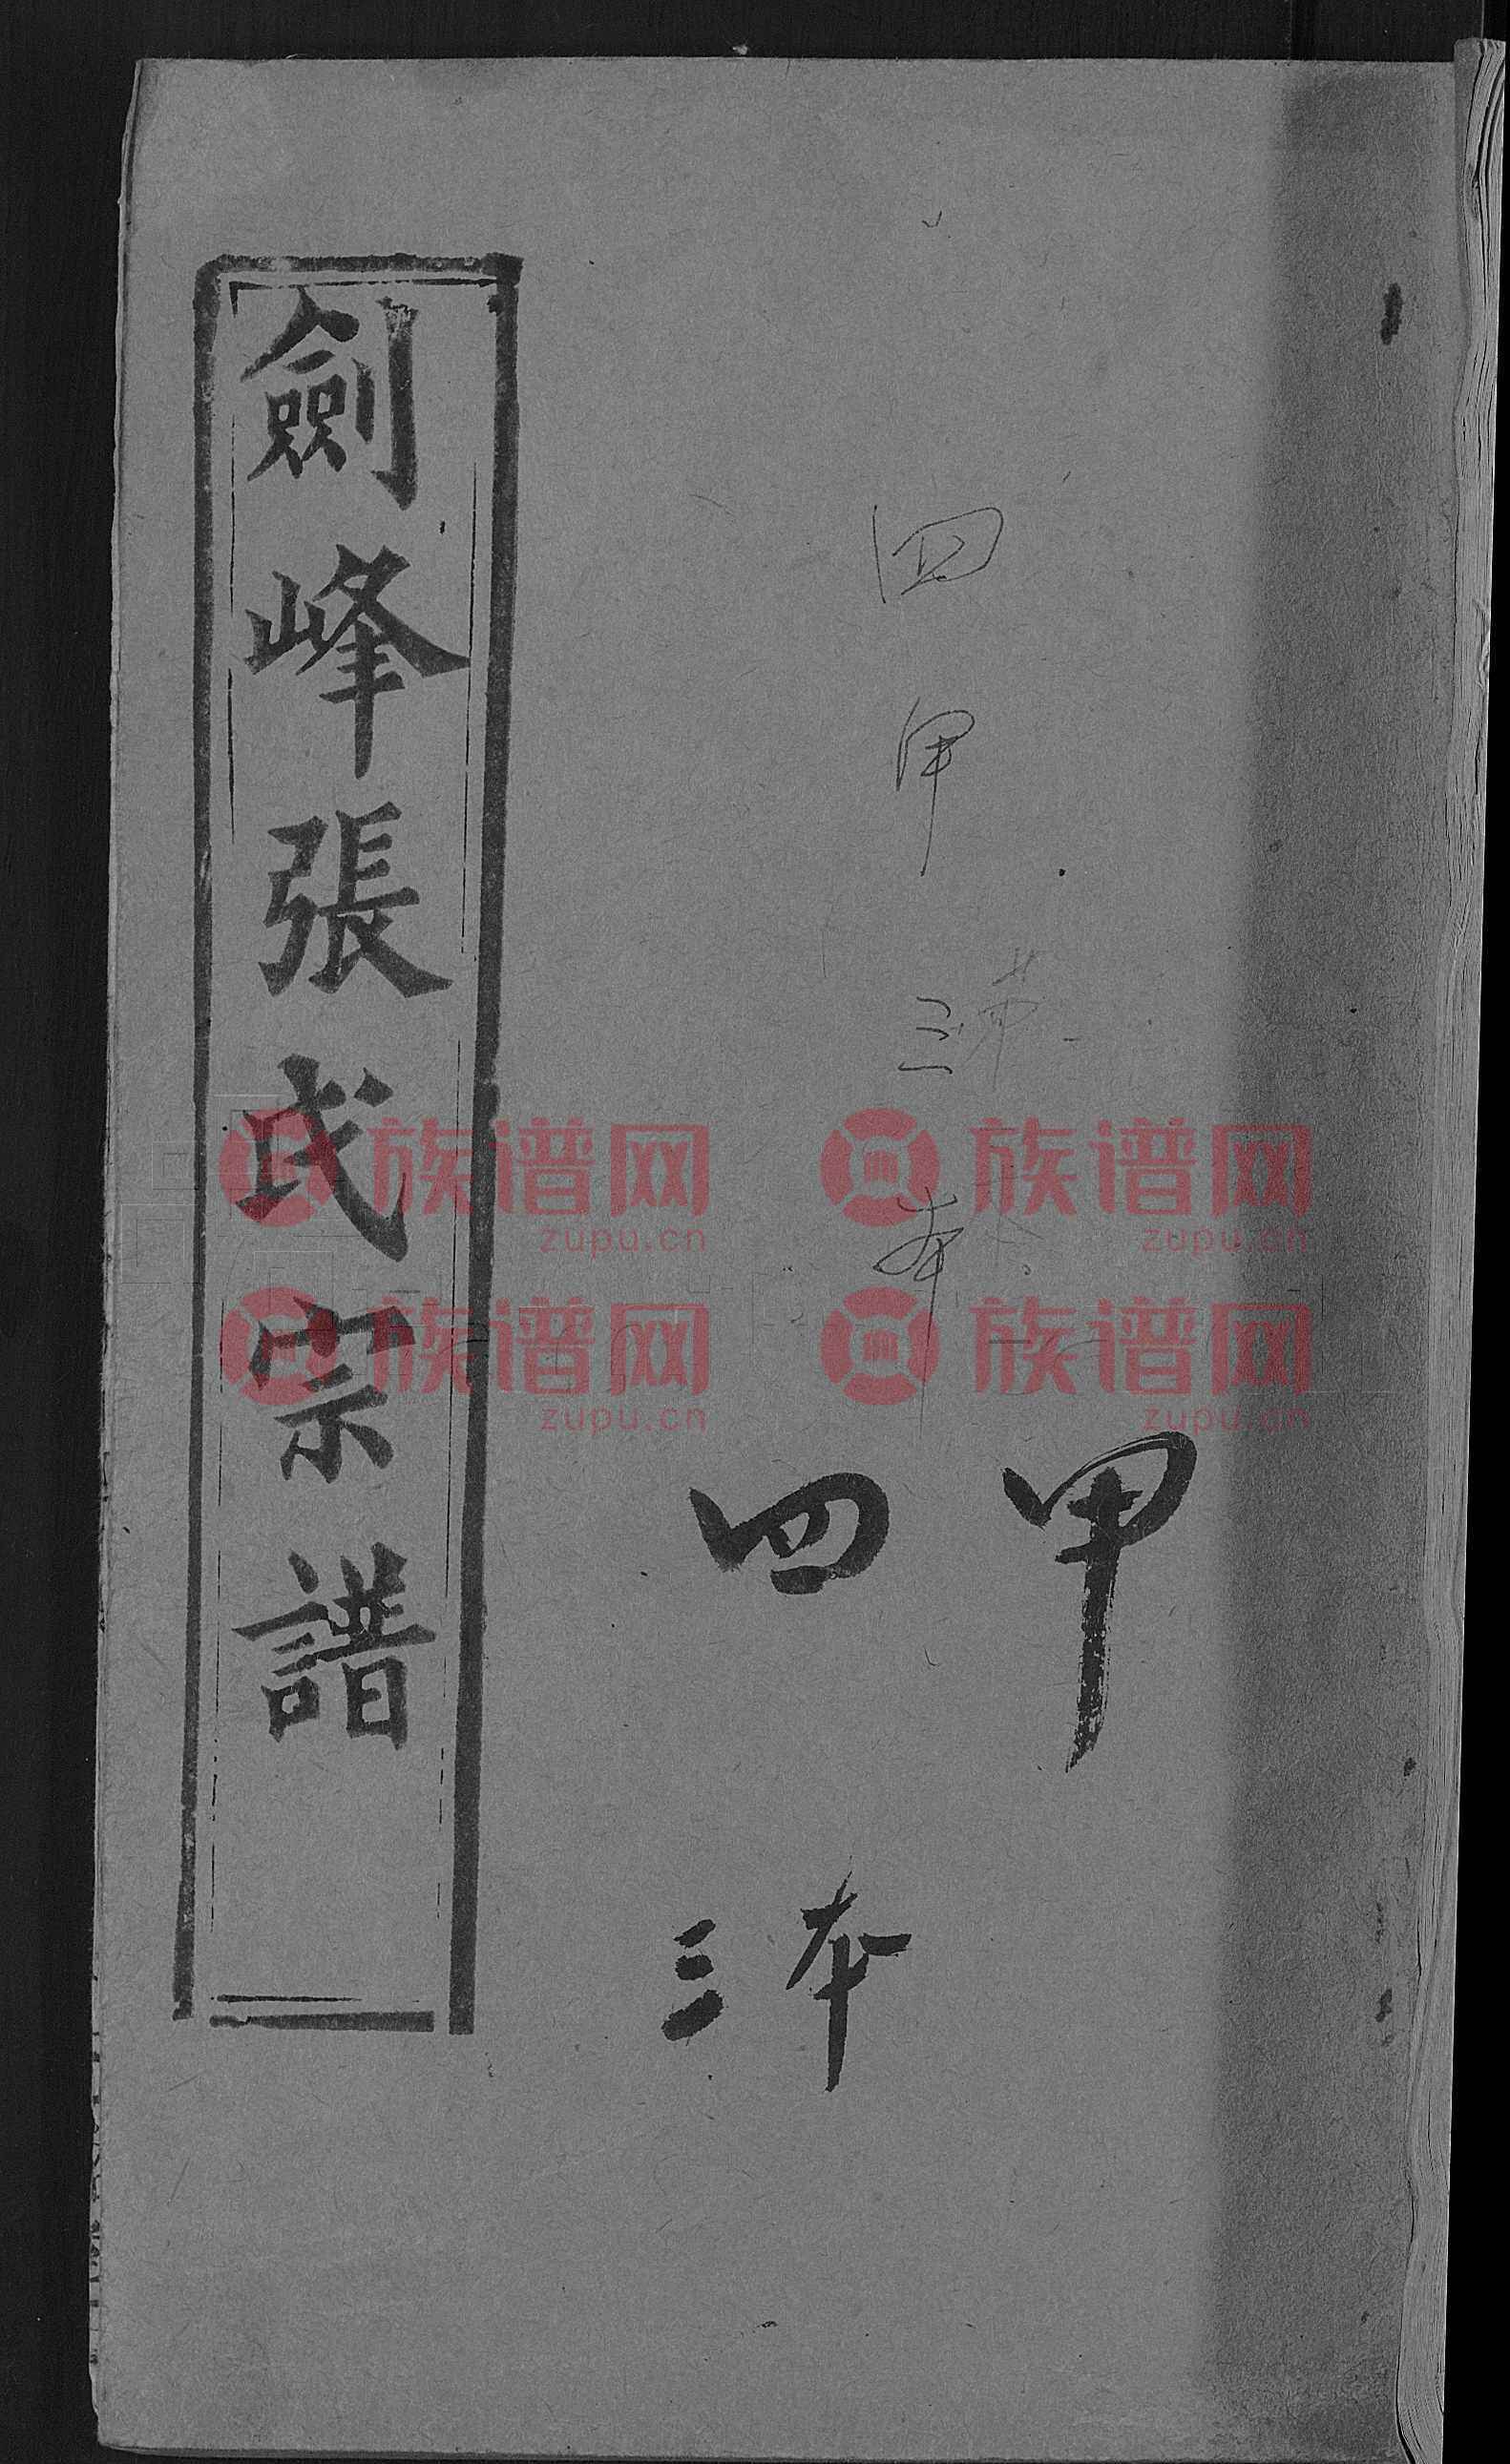 劍峰張氏宗譜
四甲三本
四甲
三本
族谱网 族谱网
zupu.cn zupu.cn
族谱网 族谱网
zupu.cn zupu.cn